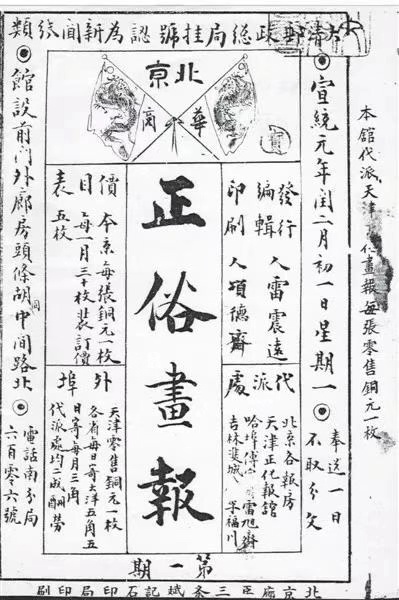 大清郵政總局挂號認為新聞紙類
本館代派天津
仁畫報每張零售銅元一枚
宣統元年閏二月初一日星期一
奉送一日
不取分文
北京
華
商
發行
編輯
印刷
人雷震遠
人項德齋
代派處
北京各報房
天津正化報館
正俗畫報
價目表
本京每張銅元一枚
每一月三十枚裝訂價
五枚
外埠
天津零售銅元一枚
各省每日寄洋五角五
日寄每月三角
代派處均二成酬勞
館設前門外廊房頭條胡同中間路北
電話南分局
六百零六號
第一期